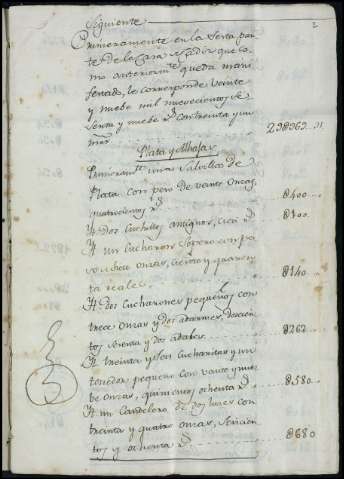 Siguiente 2
Primeramente en la Sexta par
te de la Casa
mo anteriormte queda mani
festado, le corresponde veinte
y nuebe mil nuevecientos se
senta y nuebe rs con treinta y un
mrs
Plata y Alhajas
Primeramte unas Salvillas de
Plata con peso de veinte onzas,
quatrocientos rs 8400
It dos Cuchillos antiguos, cien rs 8100
It un Cucharon Sopero con pe
so siete onzas, ciento y quaren
ta reales 8140
It dos Cucharones pequeños con
trece onzas y dos adarmes, doscien
tos sesenta y dos 8262
It treinta y un Cucharitas y un
tenedor pequeño con veinte y nue
be onzas, quinientos ochenta rs 8580
It un Candelero de dos luces con
treinta y quatro onzas, seiscien
tos y ochenta rs 8680